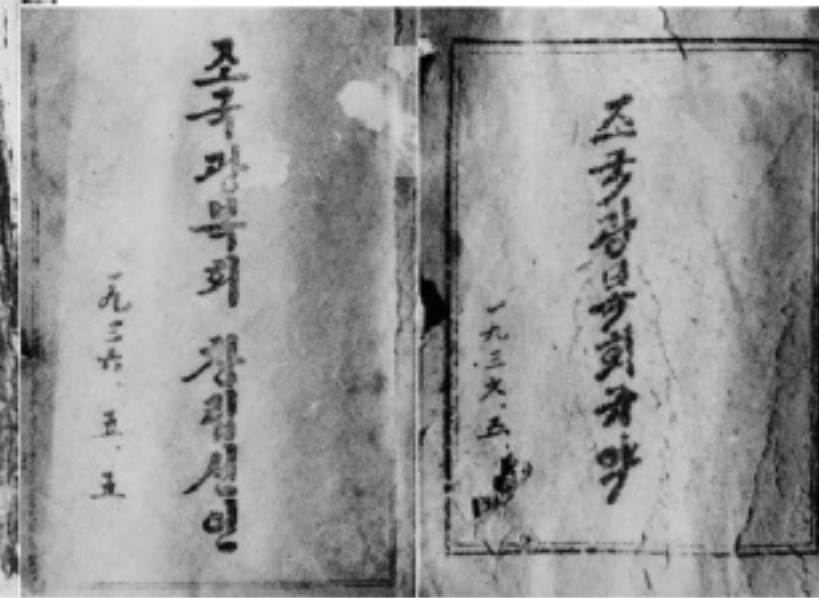 조국광복회 창립선언
一九三六. 五. 五
조국광복회규약
一九三六. 五.